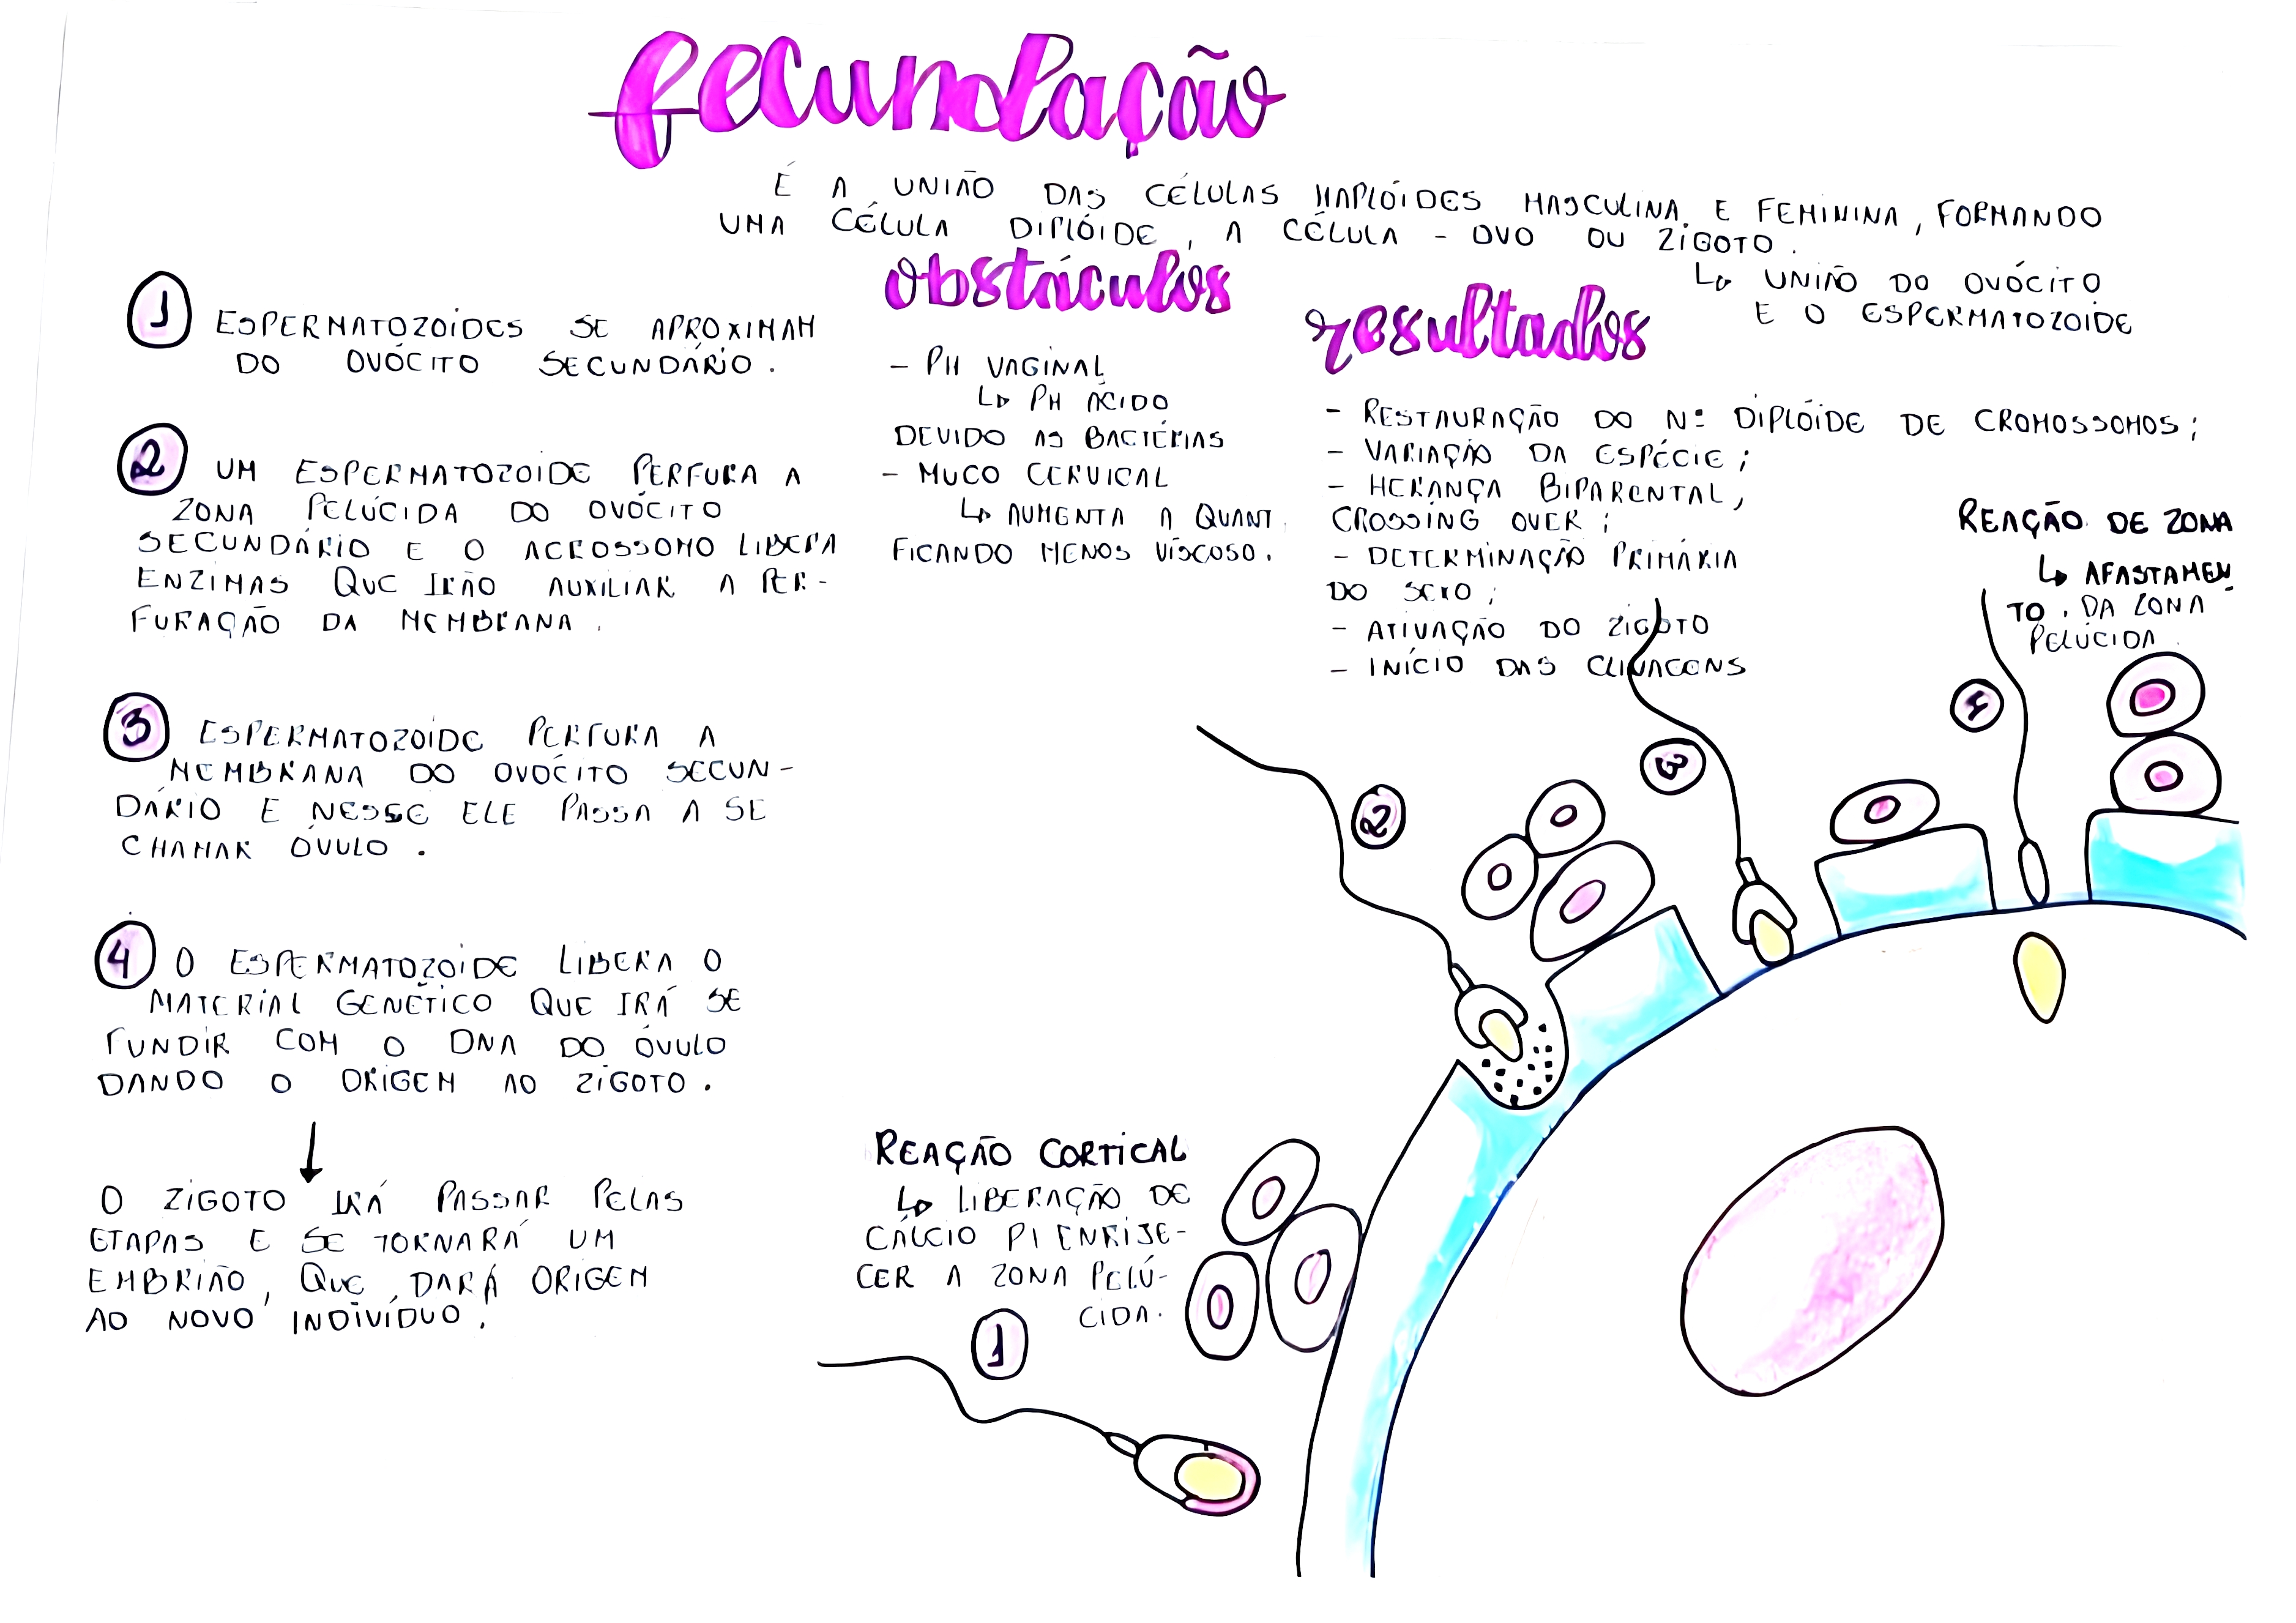 fecundação
É A UNIÃO DAS CÉLULAS HAPLÓIDES MASCULINA E FEMININA, FORMANDO
UMA CÉLULA DIPLÓIDE, A CÉLULA - OVO OU ZIGOTO.
↳ UNIÃO DO OVÓCITO
E O ESPERMATOZOIDE
1 ESPERMATOZOIDES SE APROXIMAM
DO OVÓCITO SECUNDÁRIO.
2 UM ESPERMATOZOIDE PERFURA A
ZONA PELÚCIDA DO OVÓCITO
SECUNDÁRIO E O ACROSSOMO LIBERA
ENZIMAS QUE IRÃO AUXILIAR A PER-
FURAÇÃO DA MEMBRANA.
3 ESPERMATOZOIDE PERFURA A
MEMBRANA DO OVÓCITO SECUN-
DÁRIO E NESSE ELE PASSA A SE
CHAMAR ÓVULO.
4 O ESPERMATOZOIDE LIBERA O
MATERIAL GENÉTICO QUE IRÁ SE
FUNDIR COM O DNA DO ÓVULO
DANDO O ORIGEM AO ZIGOTO.
↓
O ZIGOTO IRÁ PASSAR PELAS
ETAPAS E SE TORNARÁ UM
EMBRIÃO, QUE DARÁ ORIGEM
AO NOVO INDIVÍDUO.
obstáculos
- PH VAGINAL
↳ PH ÁCIDO
DEVIDO AS BACTÉRIAS
- MUCO CERVICAL
↳ AUMENTA A QUANT.
FICANDO MENOS VÍSCOSO.
resultados
- RESTAURAÇÃO DO Nº DIPLÓIDE DE CROMOSSOMOS;
- VARIAÇÃO DA ESPÉCIE;
- HERANÇA BIPARENTAL,
CROSSING OVER;
- DETERMINAÇÃO PRIMÁRIA
DO SEXO;
- ATIVAÇÃO DO ZIGOTO
- INÍCIO DAS CLIVAGENS
REAÇÃO DE ZONA
↳ AFASTAMEN-
TO DA ZONA
PELÚCIDA.
4
3
2
REAÇÃO CORTICAL
↳ LIBERAÇÃO DE
CÁLCIO P/ ENRIJE-
CER A ZONA PELÚ-
CIDA.
1